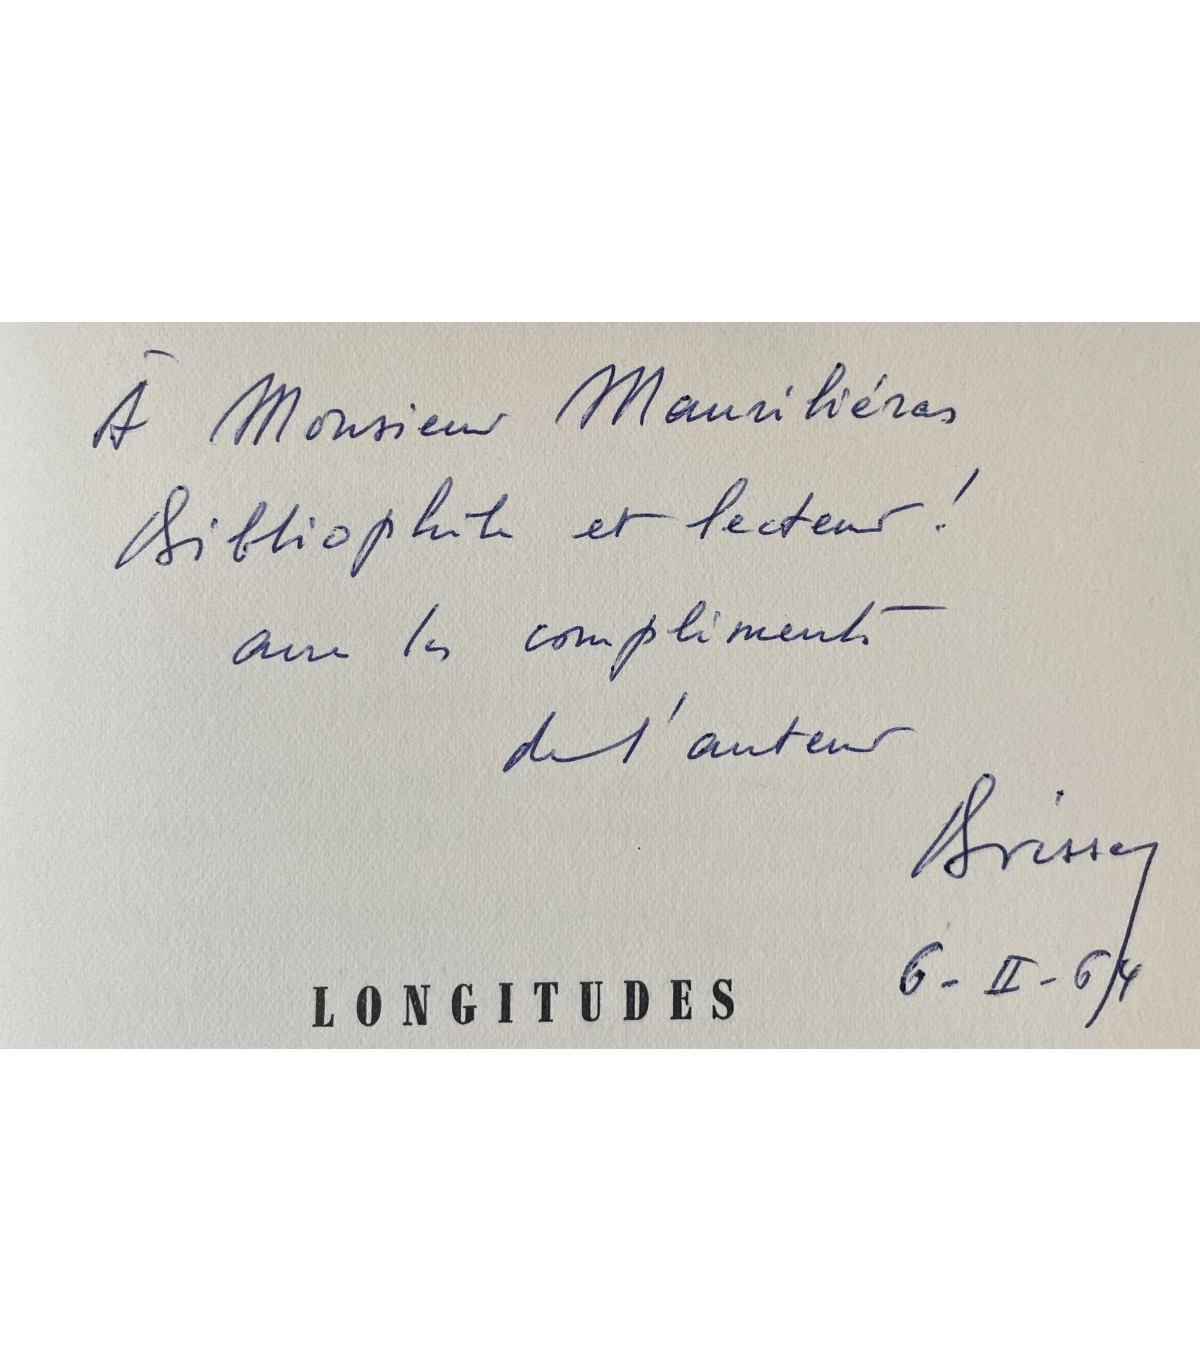 À Monsieur Mauriliéras
Bibliophile et lecteur !
avec les compliments
de l'auteur
Brissy
6-II-64
LONGITUDES